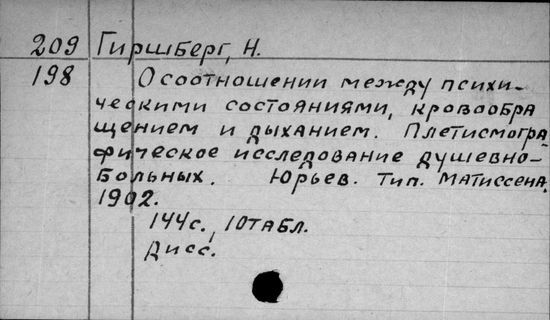 209 Гиршберг, Н.
198 О соотношении между психи-
ческими состояниями, кровообра
щением и дыханием. Плетисмогра
фическое исследование душевно-
больных. Юрьев. Тип. Матиссена.
1902.
144с., 10табл.
Дисс.